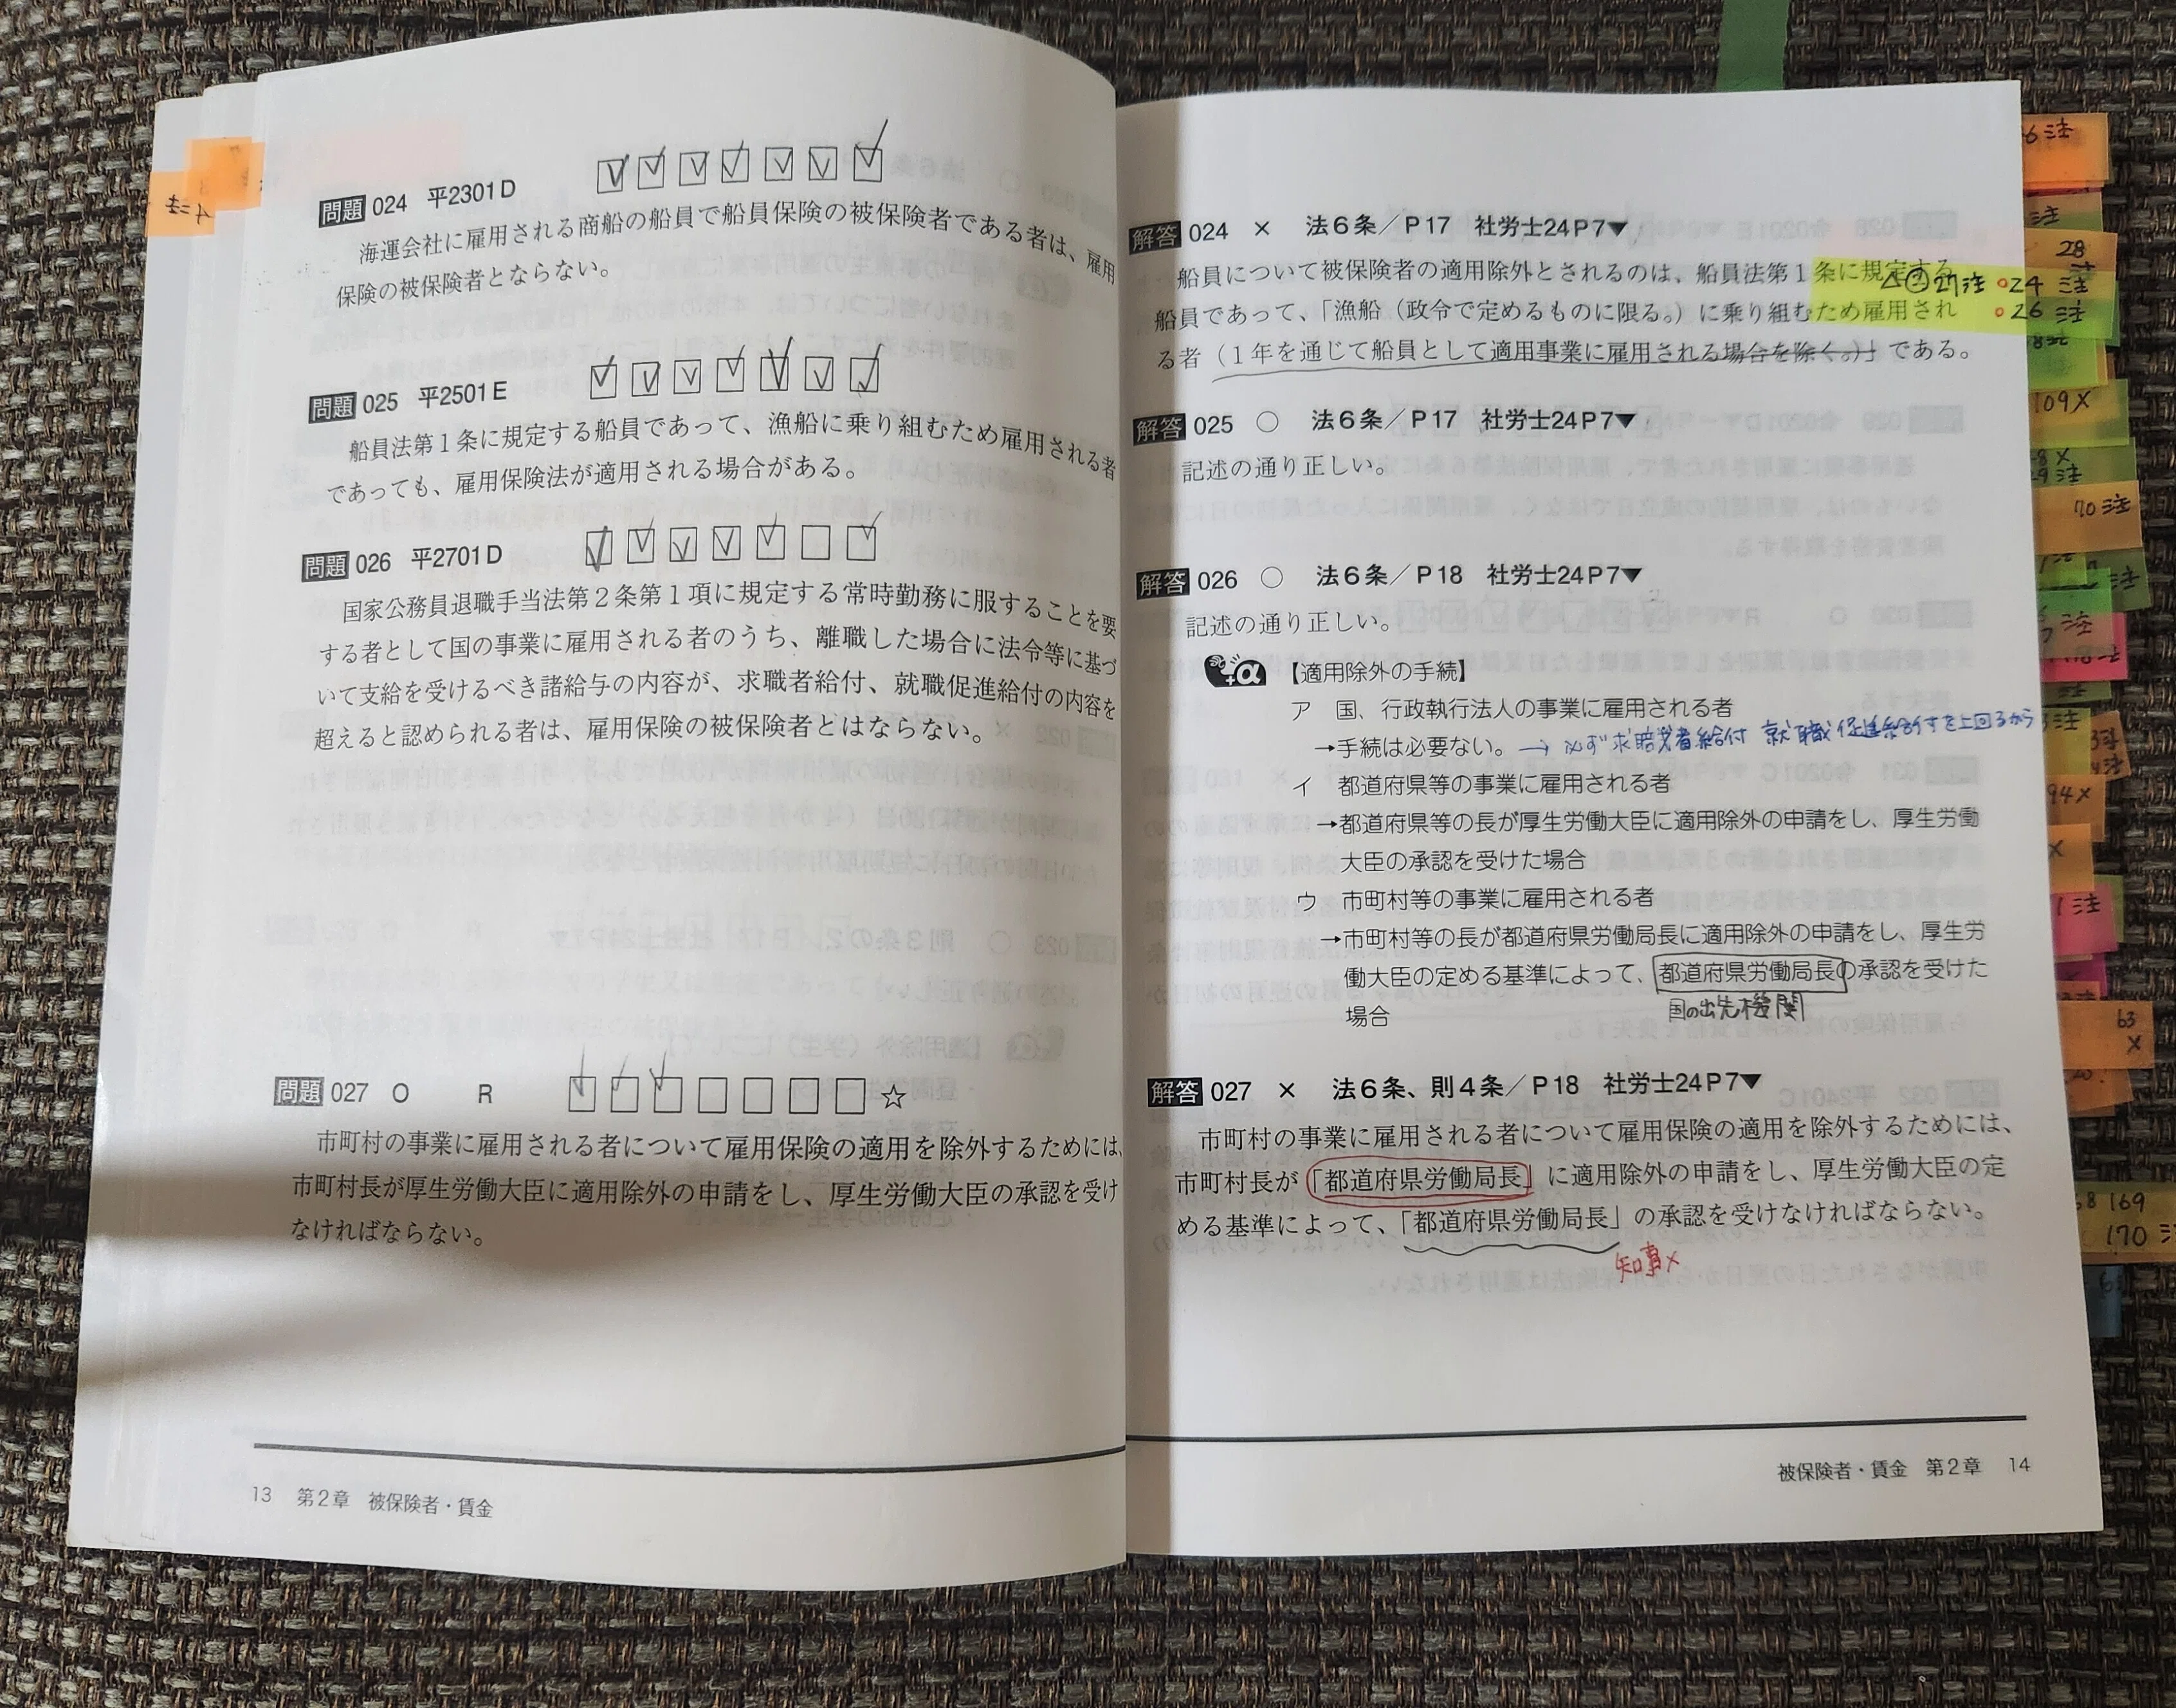 問題 024 平2301D
海運会社に雇用される商船の船員で船員保険の被保険者である者は、雇用
保険の被保険者とならない。
問題 025 平2501E
船員法第1条に規定する船員であって、漁船に乗り組むため雇用される者
であっても、雇用保険法が適用される場合がある。
問題 026 平2701D
国家公務員退職手当法第2条第1項に規定する常時勤務に服することを要
する者として国の事業に雇用される者のうち、離職した場合に法令等に基づ
いて支給を受けるべき諸給与の内容が、求職者給付、就職促進給付の内容を
超えると認められる者は、雇用保険の被保険者とはならない。
問題 027 O R ☆
市町村の事業に雇用される者について雇用保険の適用を除外するためには、
市町村長が厚生労働大臣に適用除外の申請をし、厚生労働大臣の承認を受け
なければならない。
13 第2章 被保険者・賃金
解答 024 × 法6条/P17 社労士24P7▼
船員について被保険者の適用除外とされるのは、船員法第1条に規定する
船員であって、「漁船(政令で定めるものに限る。)に乗り組むため雇用され
る者(1年を通じて船員として適用事業に雇用される場合を除く。)」である。
解答 025 ○ 法6条/P17 社労士24P7▼
記述の通り正しい。
解答 026 ○ 法6条/P18 社労士24P7▼
記述の通り正しい。
+α 【適用除外の手続】
ア 国、行政執行法人の事業に雇用される者
→手続は必要ない。→ 必ず求職者給付 就職促進給付を上回るから
イ 都道府県等の事業に雇用される者
→都道府県等の長が厚生労働大臣に適用除外の申請をし、厚生労働
大臣の承認を受けた場合
ウ 市町村等の事業に雇用される者
→市町村等の長が都道府県労働局長に適用除外の申請をし、厚生労
働大臣の定める基準によって、都道府県労働局長の承認を受けた
国の出先機関
場合
解答 027 × 法6条、則4条/P18 社労士24P7▼
市町村の事業に雇用される者について雇用保険の適用を除外するためには、
市町村長が「都道府県労働局長」に適用除外の申請をし、厚生労働大臣の定
める基準によって、「都道府県労働局長」の承認を受けなければならない。
知事×
被保険者・賃金 第2章 14
4注
6注
28
27注 24 注
26 注
109×
70注
94×
1注
63
×
169
170